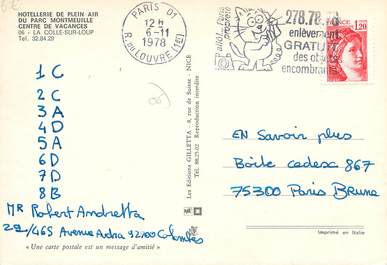 HOTELLERIE DE PLEIN AIR
DU PARC MONTMEUILLE
CENTRE DE VACANCES
06 - LA COLLE-SUR-LOUP
Tel. 32.84.29
PARIS 01
12 H
6-11
1978
R. du LOUVRE (1er)
allo!.. Paris
propreté
278.78.
enlèvement
GRATUIT
des objets
encombrants
1,20
06
1C
2C
3A
4D
5A
6D
7D
8B
MR Robert Andretta
92700 Colombes
« Une carte postale est un message d'amitié »
Les Editions GILLETTA - 8, rue de Suisse - NICE
Tél. 88.25.02 Reproduction interdite
EN Savoir plus
Boîte cedex 867
75300 Paris Brune
Imprimé en Italie